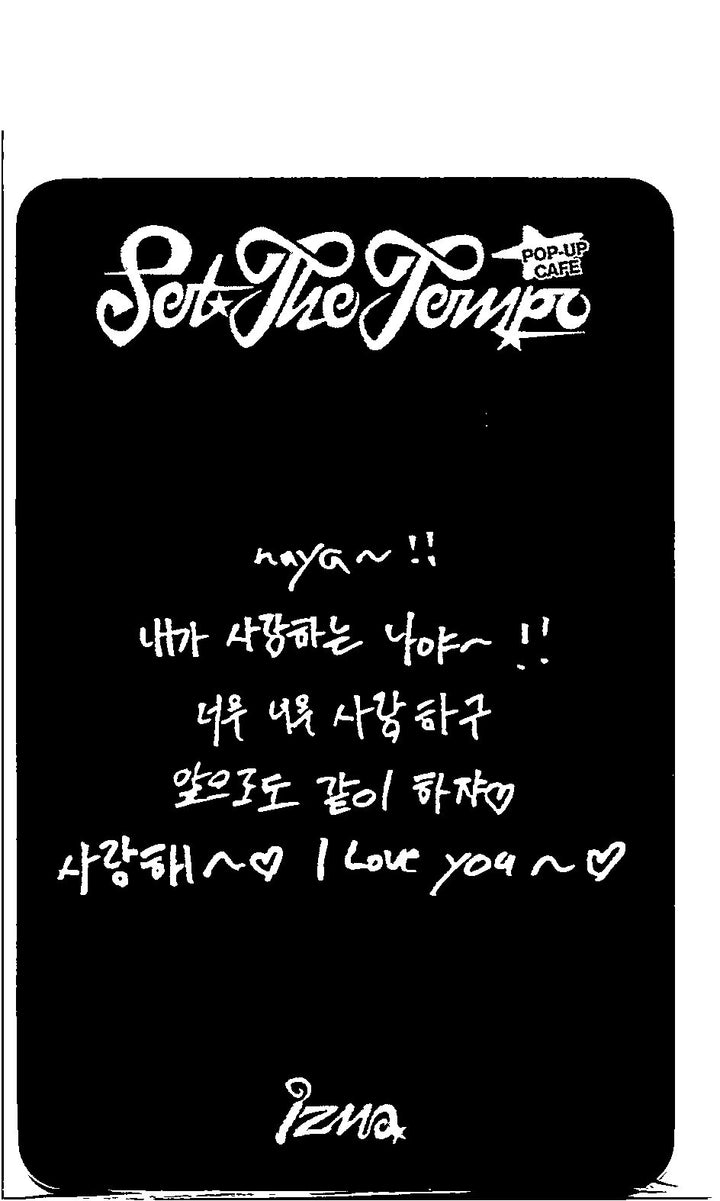 Set The Tempo
POP-UP
CAFE
naya~!!
내가 사랑하는 나야~!!
너무 너무 사랑하구
앞으로도 같이 하쟈♡
사랑해~♡ I Love you~♡
izna